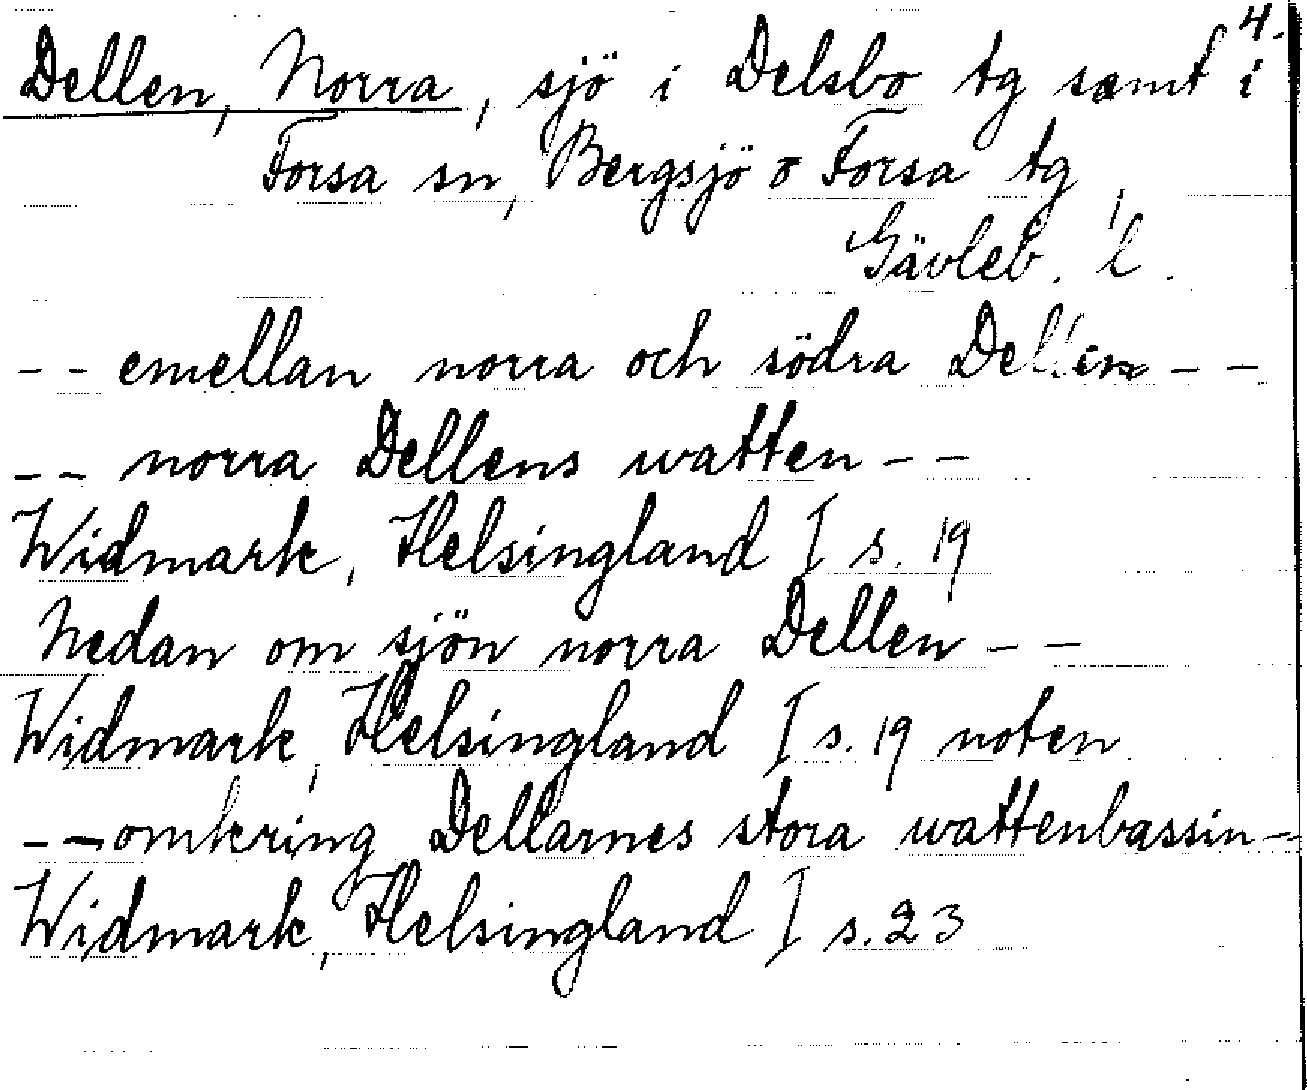 4.
Dellen, Norra, sjö i Delsbo tg samt i
Forsa sn, Bergsjö o Forsa tg,
Gävleb. l.
-- emellan norra och södra Dellen --
-- norra Dellens watten --
Widmark, Helsingland I s. 19
Nedan om sjön norra Dellen --
Widmark, Helsingland I s. 19 noten
-- omkring Dellarnes stora wattenbassin --
Widmark, Helsingland I s. 23